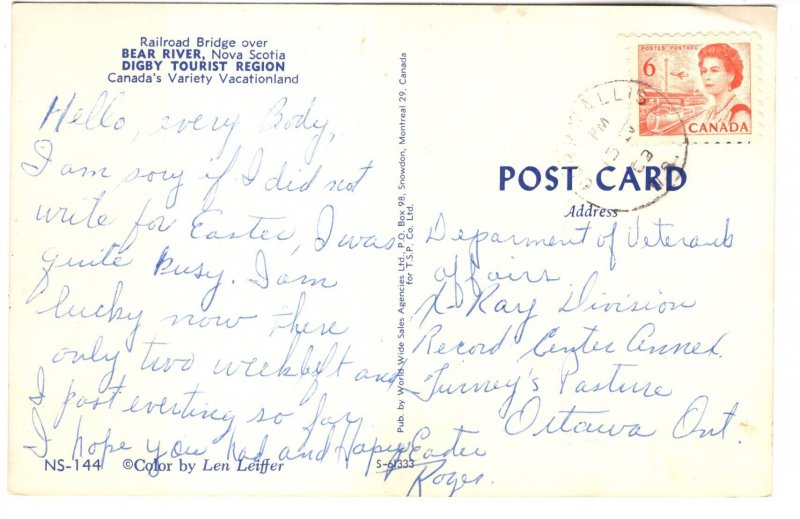 Railroad Bridge over
BEAR RIVER, Nova Scotia
DIGBY TOURIST REGION
Canada's Variety Vacationland
Hello, every Body,
I am sory if I did not
write for Easter, I was
quite Busy. I am
lucky now there
only two week left and
I past everting so far
I hope you had and Happy Easter
Roger.
NS-144 ©Color by Len Leiffer
S-61333
Pub. by World Wide Sales Agencies Ltd., P.O. Box 98, Snowdon, Montreal 29, Canada
for T.S.P. Co. Ltd.
POSTES POSTAGE
6
CANADA
CORNWALLIS
PM
N.S.
POST CARD
Address
Deparment of Veterans
affairs
X-Ray Division
Record Center Annex.
Turney's Pasture
Ottawa Ont.